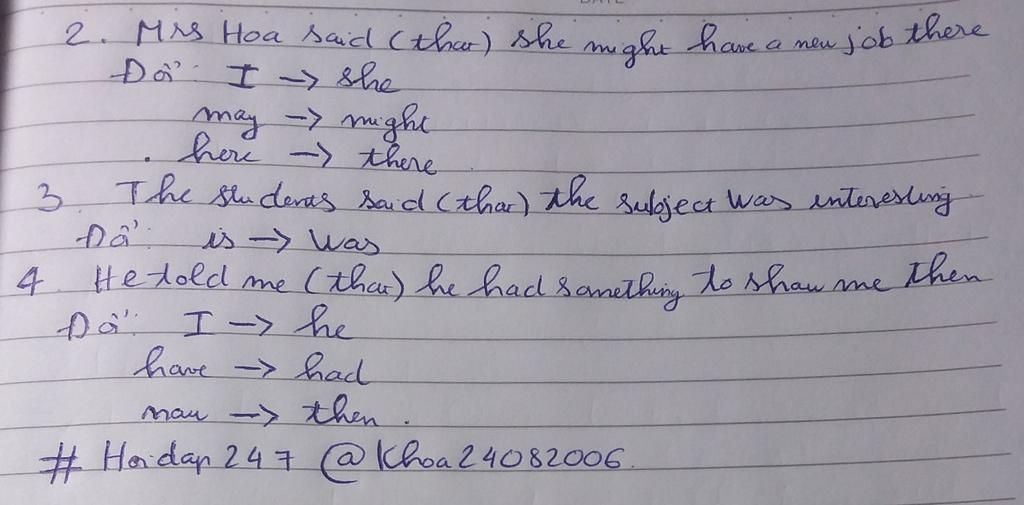 2. Mrs Hoa said (that) she might have a new job there
Đổi: I → she
may → might
here → there
3 The students said (that) the subject was interesting
Đổi: is → was
4 He told me (that) he had something to show me then
Đổi: I → he
have → had
now → then.
# Hoidap247 @Khoa24082006.